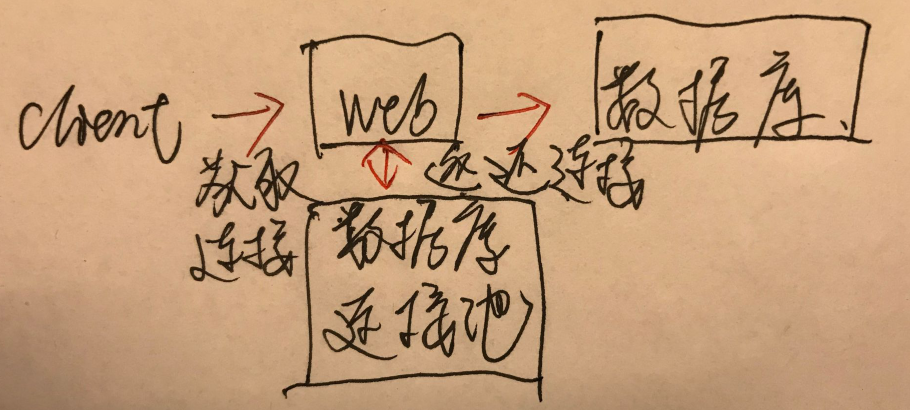 Client
web
数据库
获取
连接
返还连接
数据库
连接池